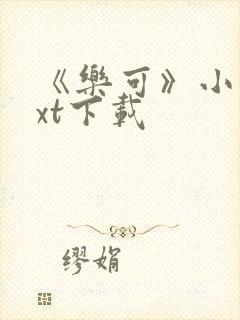 《樂可》小
xt下載
缪娟